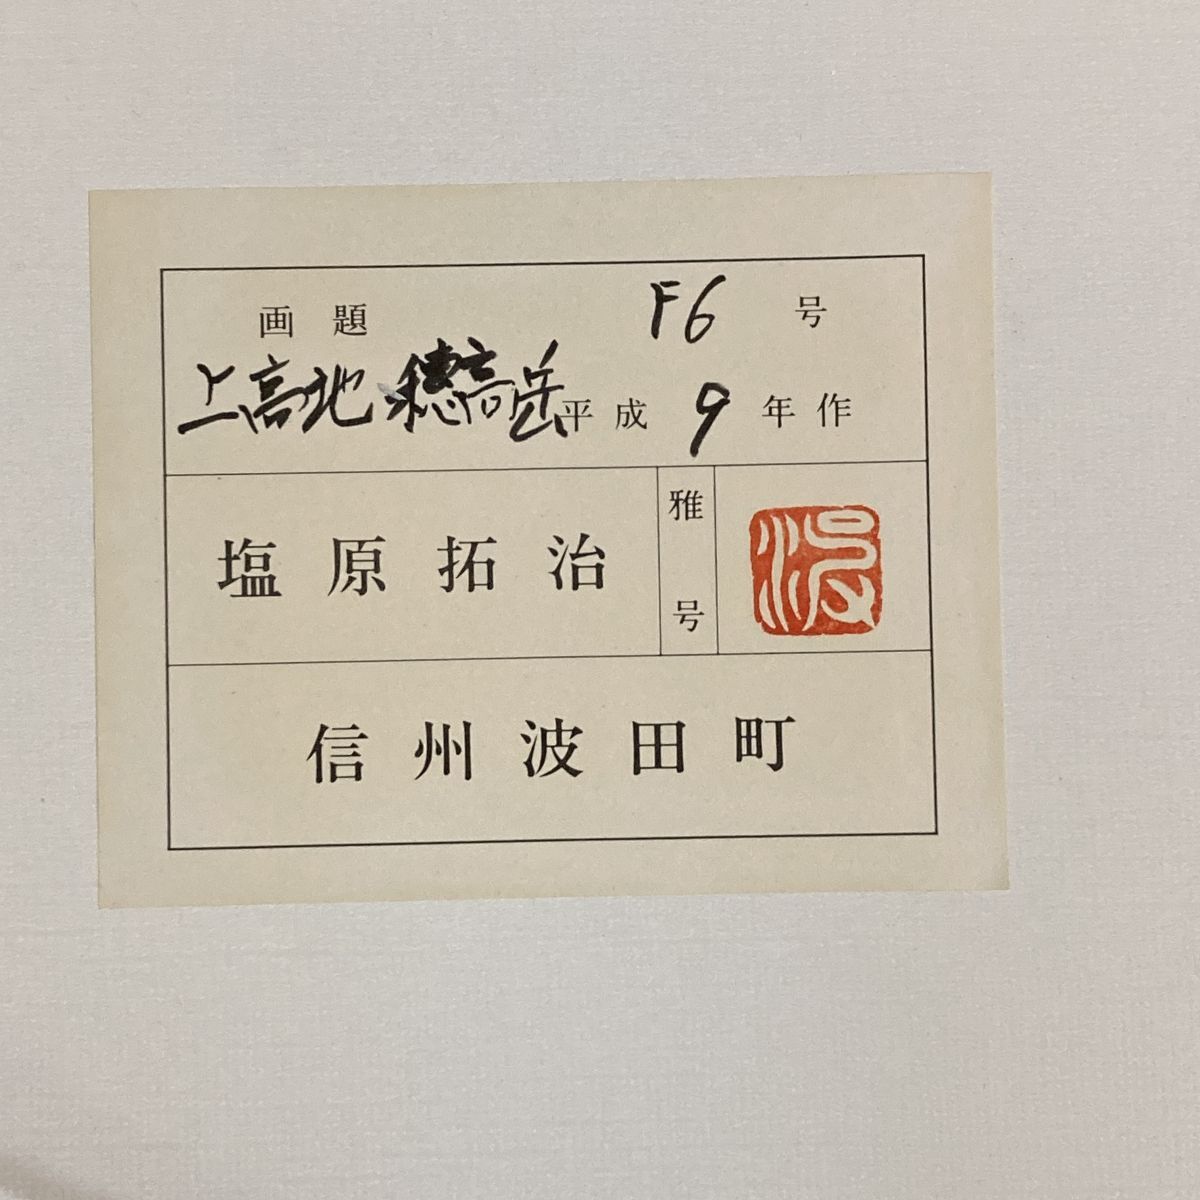 画題 F6 号
上高地 穂高岳 平成 9 年作
塩原拓治 雅号
信州波田町